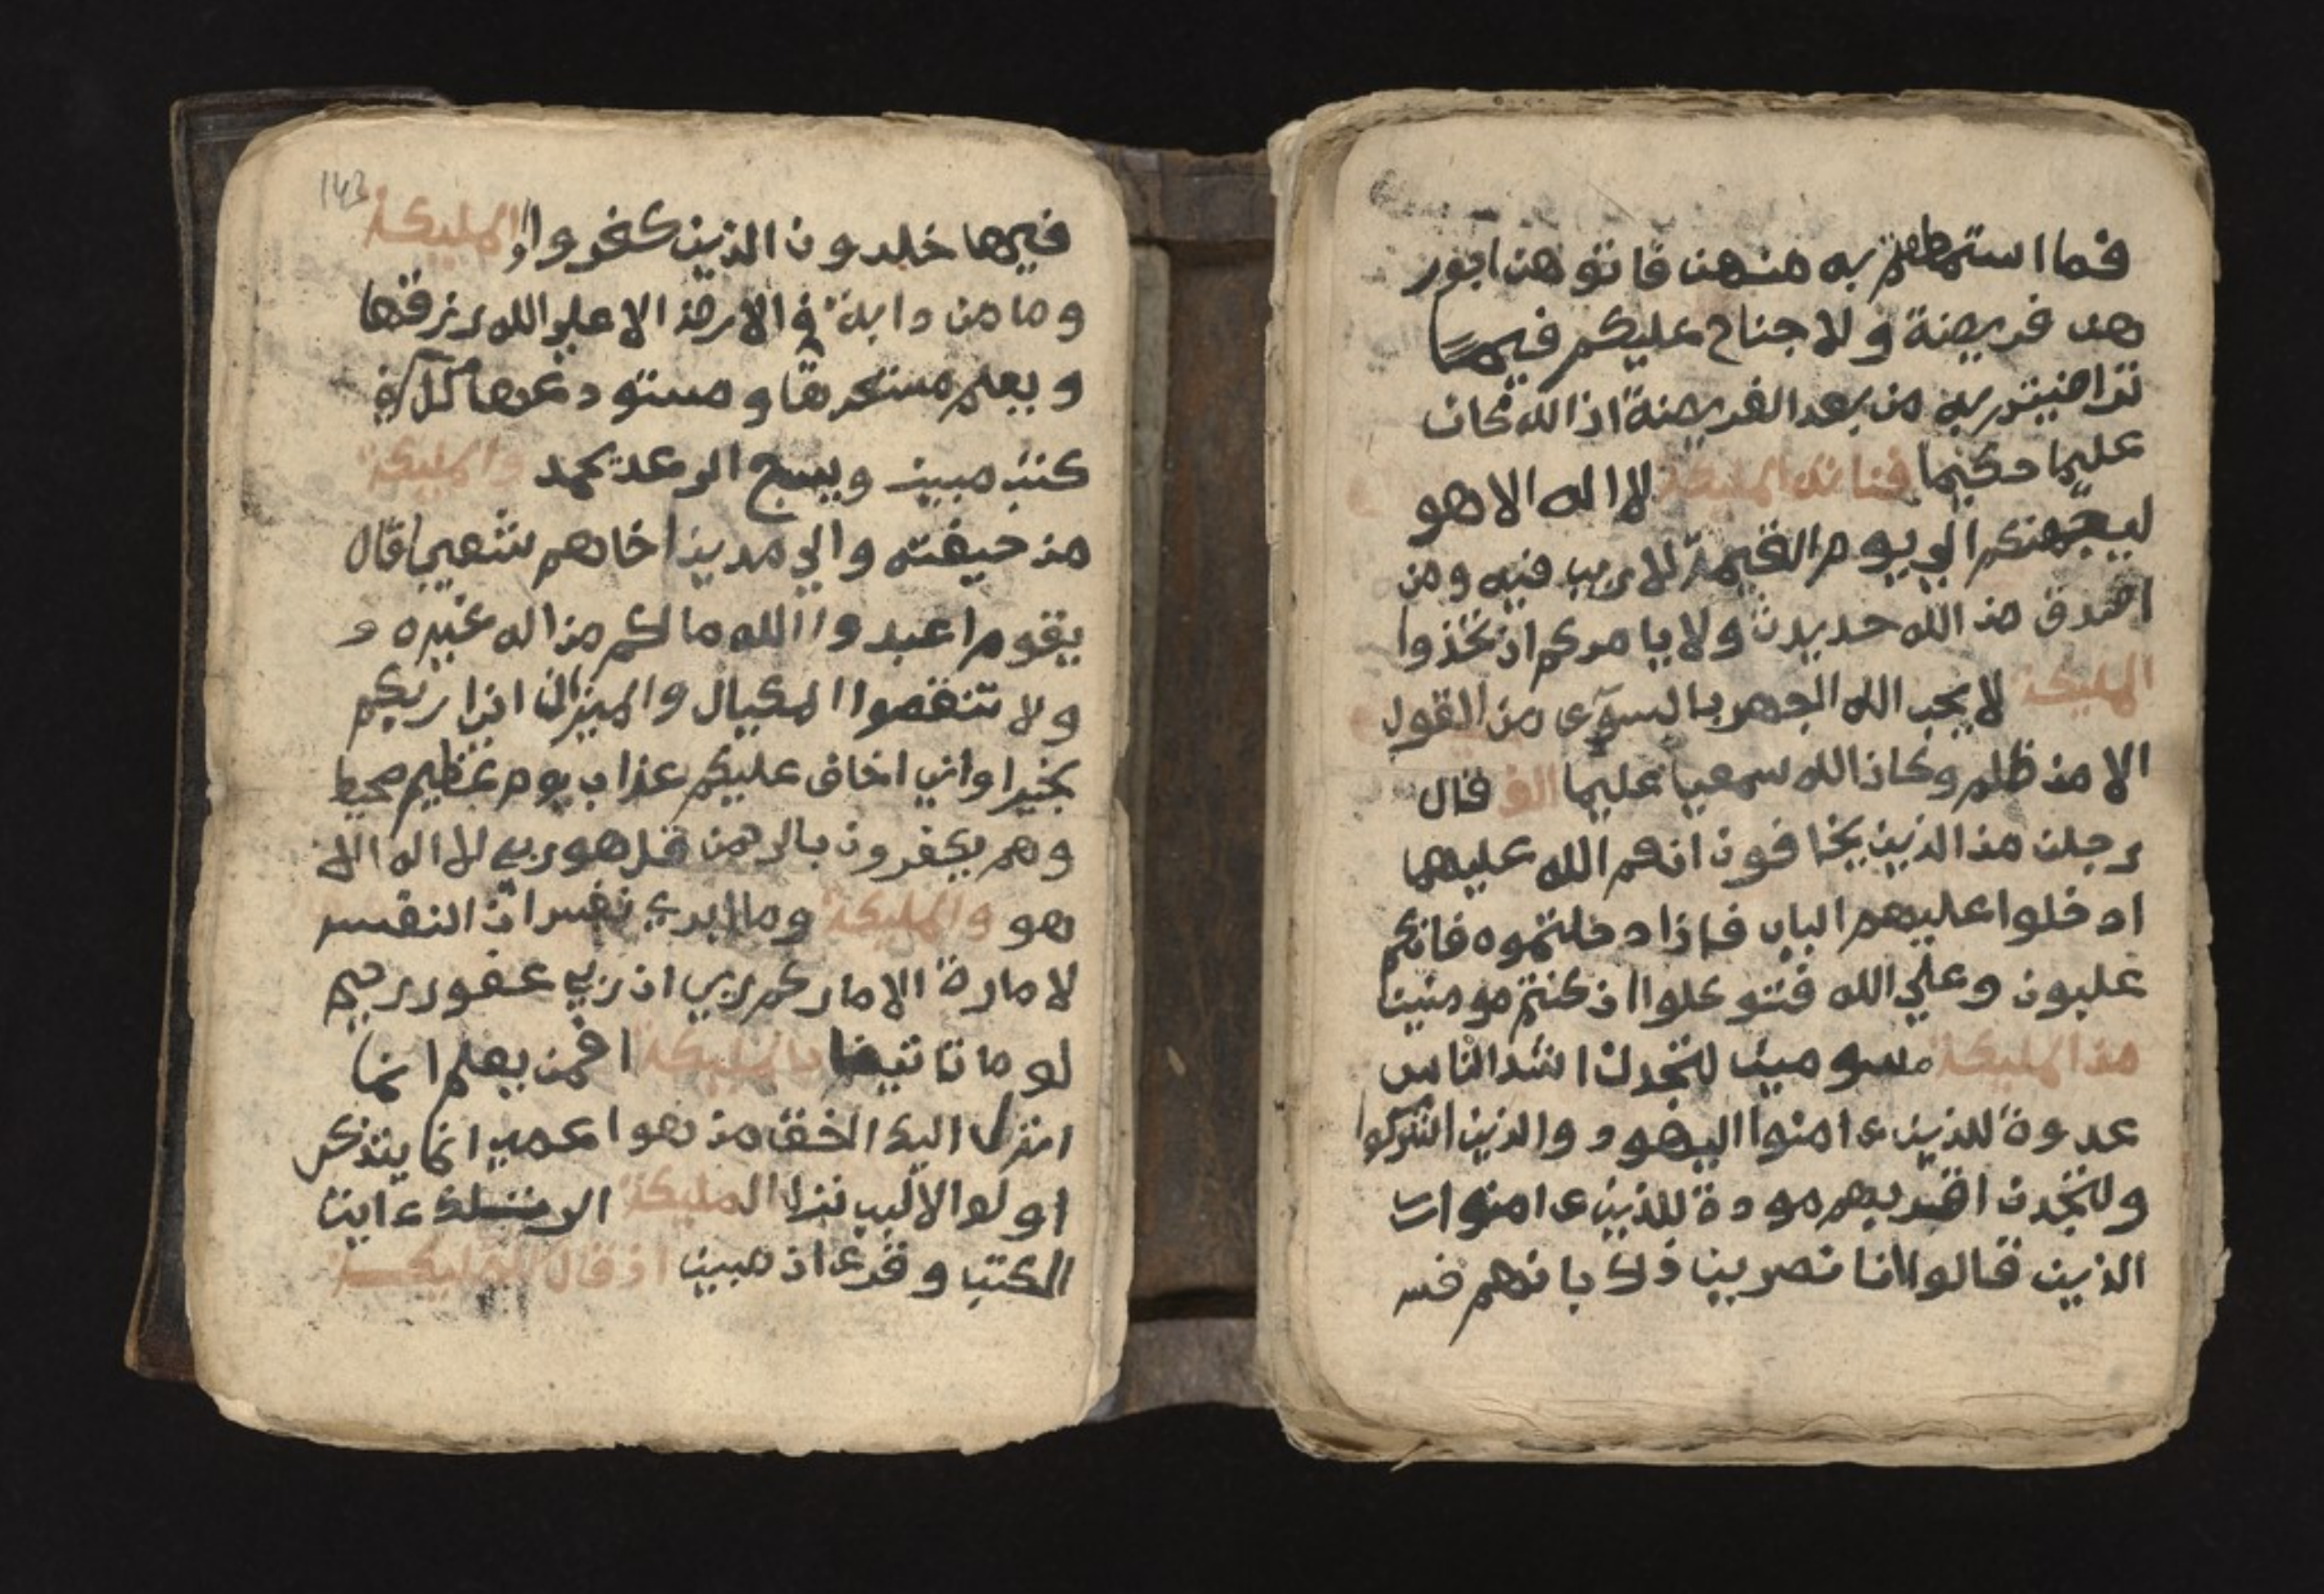 فما استمتعتم به منهن فاتوهن اجور
هن فريضة ولا جناح عليكم فيما
تراضيتم به من بعد الفريضة ان الله كان
عليما حكيما فنادته المليكة لا اله الا هو
ليجمعنكم الي يوم القيمة لا ريب فيه ومن
اصدق من الله حديثا ولا يامركم ان تتخذوا
المليكة لا يحب الله الجهر بالسوء من القول
الا من ظلم وكان الله سمعيا عليما الف قال
رجلن من الذين يخافون انعم الله عليهما
ادخلوا عليهم الباب فاذا دخلتموه فانكم
غلبون وعلي الله فتوكلوا ان كنتم مومنين
من المليكة مسومين لتجدن اشد الناس
عدوة للذين ءامنوا اليهود والذين اشركوا
ولتجدن اقربهم مودة للذين ءامنوا
الذين قالوا انا نصرين ذلك بانهم قس
143
فيها خلدون الذين كفروا المليكة
وما من دابة في الارض الا علي الله رزقها
ويعلم مستقرها ومستودعها كل في
كتب مبين ويسبح الرعد بحمد والمليكة
من خيفته والي مدين اخاهم شعيبا قال
يقوم اعبدوا الله ما لكم من اله غيره و
ولا تنقصوا المكيال والميزان اني اريكم
بخير واني اخاف عليكم عذاب يوم عظيم محيط
وهم يكفرون بالرحمن قل هو ربي لا اله الا
هو والمليكة وما ابري نفس ان النفس
لامارة الا مارحم ربي ان ربي غفور رحيم
لو ما تاتينا بالمليكة افمن يعلم انما
انزل اليك الحق من هو اعمي انما يتذكر
اولوا الالبب ننزل المليكة الر تلك ءايت
الكتب وقرءان مبين اذ قال المليكة